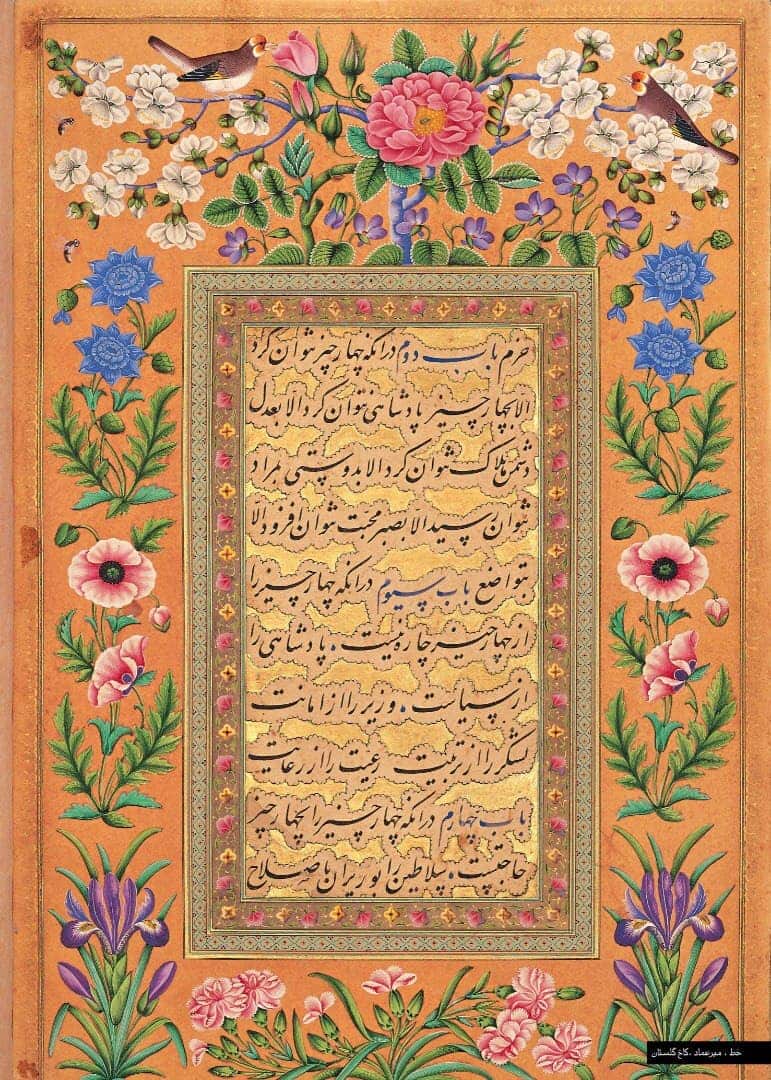 حزم باب دوم در انکه چهار چیز نتوان کرد
الا بچهار چیز پادشاهی نتوان کرد الا بعدل
دشمن هلاک نتوان کرد الا بدوستی بمراد
نتوان رسید الا بصبر محبت نتوان افزود الا
بتواضع باب سیوم در انکه چهار چیز را
از چهار چیز چاره نیست پادشاهی را
از سیاست وزیر را از امانت
لشکر را از تربیت رعیت را از رعایت
باب چهارم در انکه چهار چیز را بچهار چیز
حاجتست سلاطین را بوزیران با صلاح
خط ، میرعماد ،کاخ گلستان